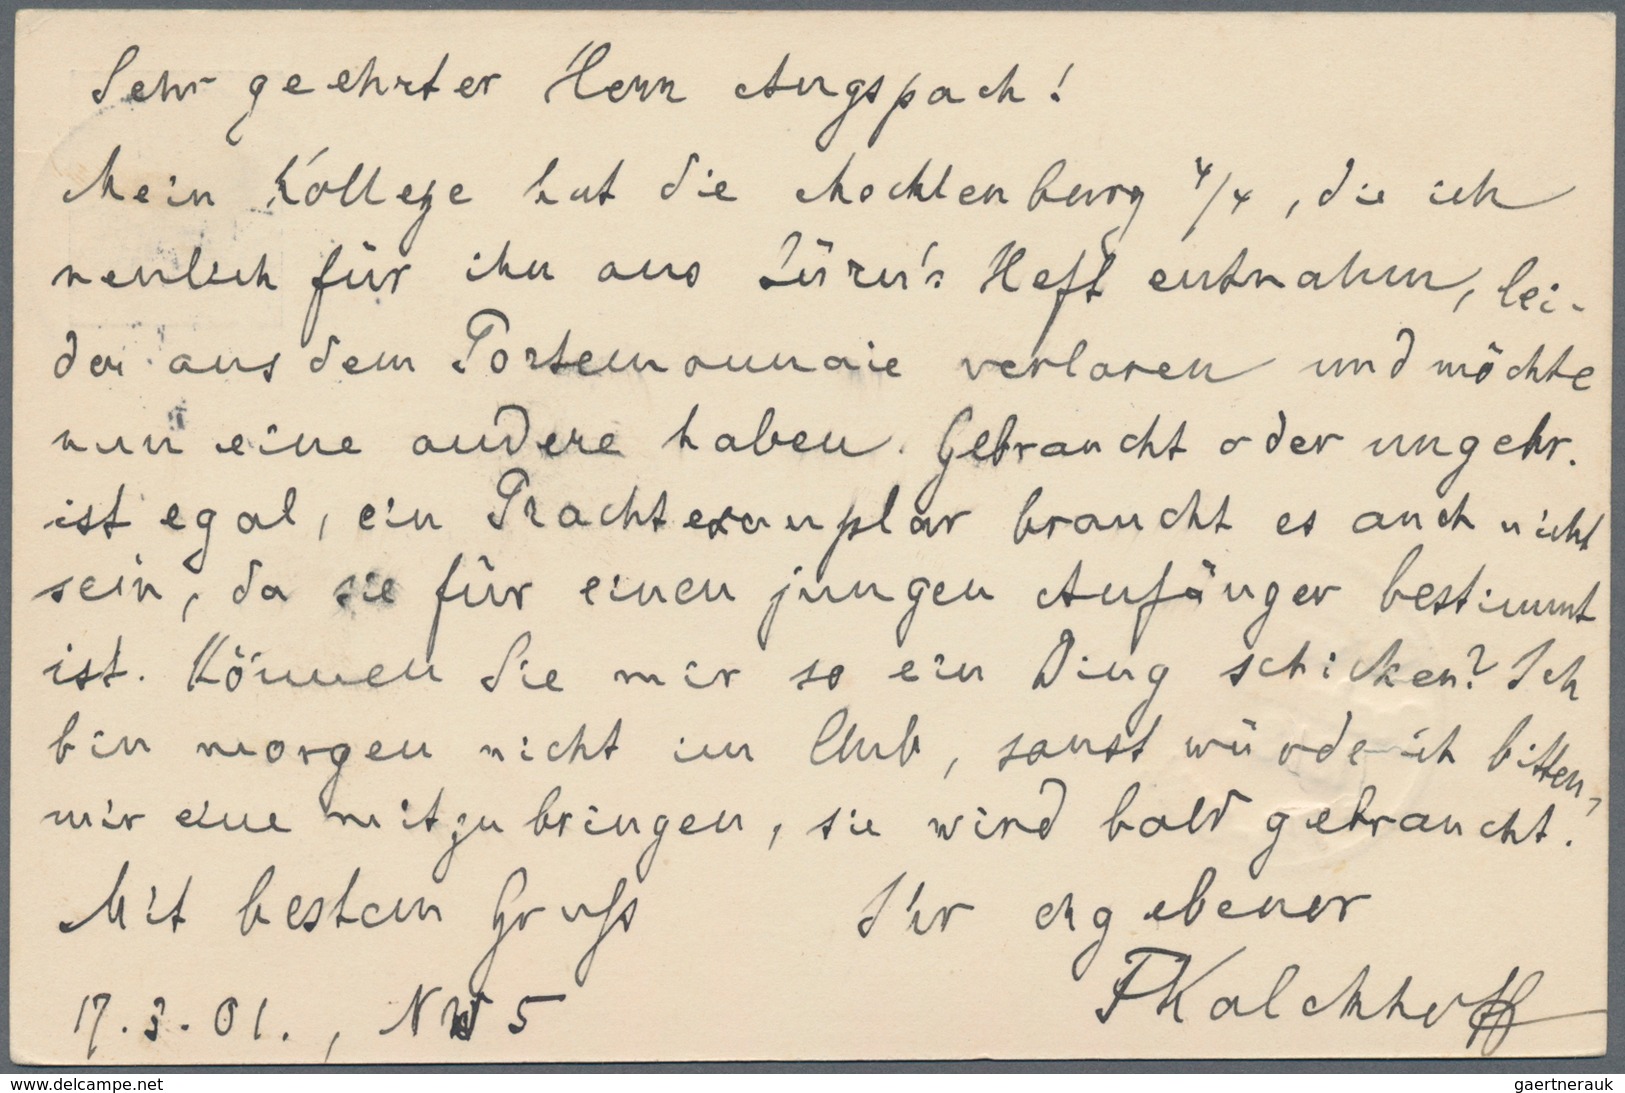 Sehr geehrter Herr Augspach!
Mein Kollege hat die Mecklenburg 4/4, die ich
neulich für ihn aus Zürn's Heft entnahm, lei-
der aus dem Portemonnaie verloren und möchte
nun eine andere haben. Gebraucht oder ungebr.
ist egal, ein Prachtexemplar braucht es auch nicht
sein, da sie für einen jungen Anfänger bestimmt
ist. Können Sie mir so ein Ding schicken? Ich
bin morgen nicht im Club, sonst würde ich bitten,
mir eine mitzubringen, sie wird bald gebraucht!
Mit bestem Gruß Ihr ergebener
17.3.01., NW 5 F Kalckhoff
www.delcampe.net gaertnerauk